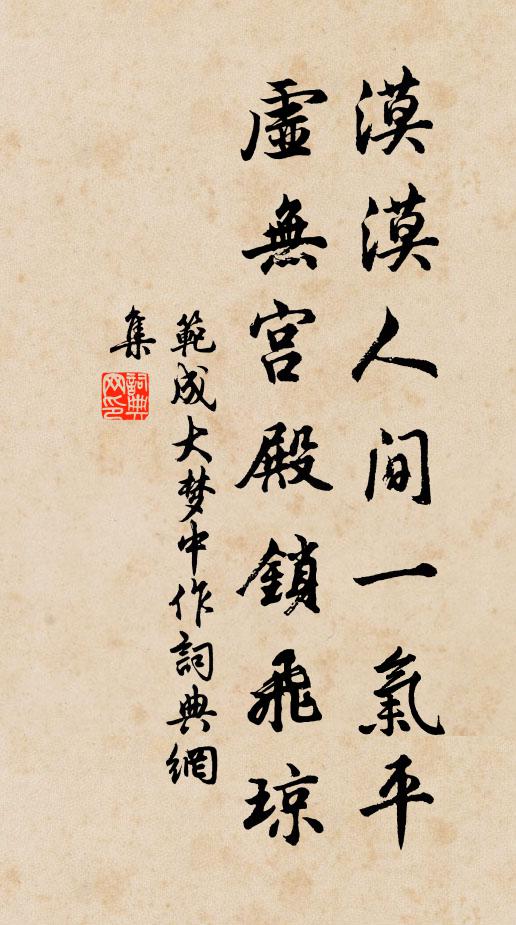 漠漠人间一氣平
虛無宫殿鎖飛琼
範成大梦中作詞典網
集
詞典
网印